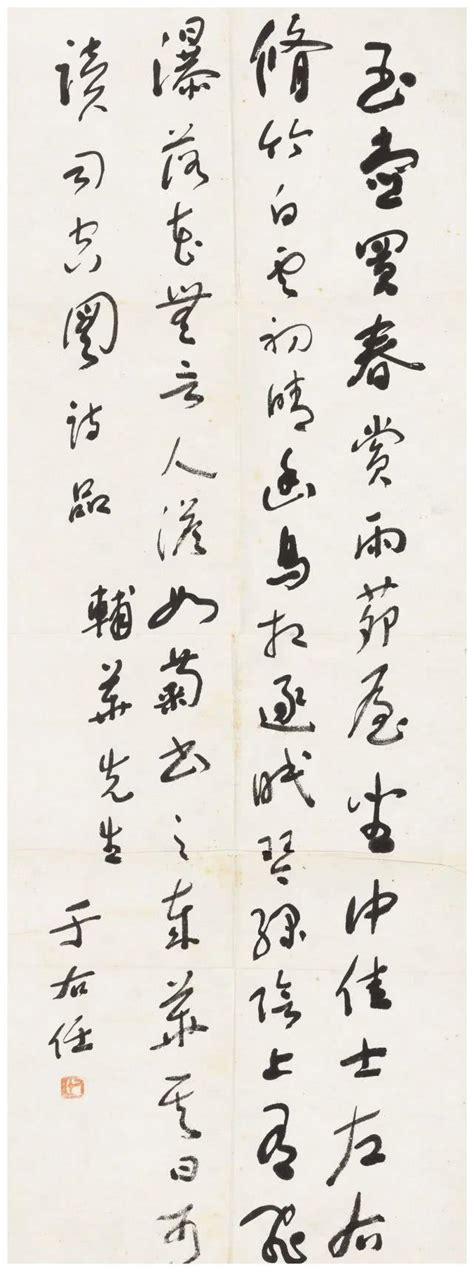 玉壺買春賞雨茆屋坐中佳士左右
脩竹白雲初晴幽鳥相逐眠琴綠陰上有飛
瀑落花無言人澹如菊書之歲華其曰可
讀司空圖詩品
輔華先生
于右任